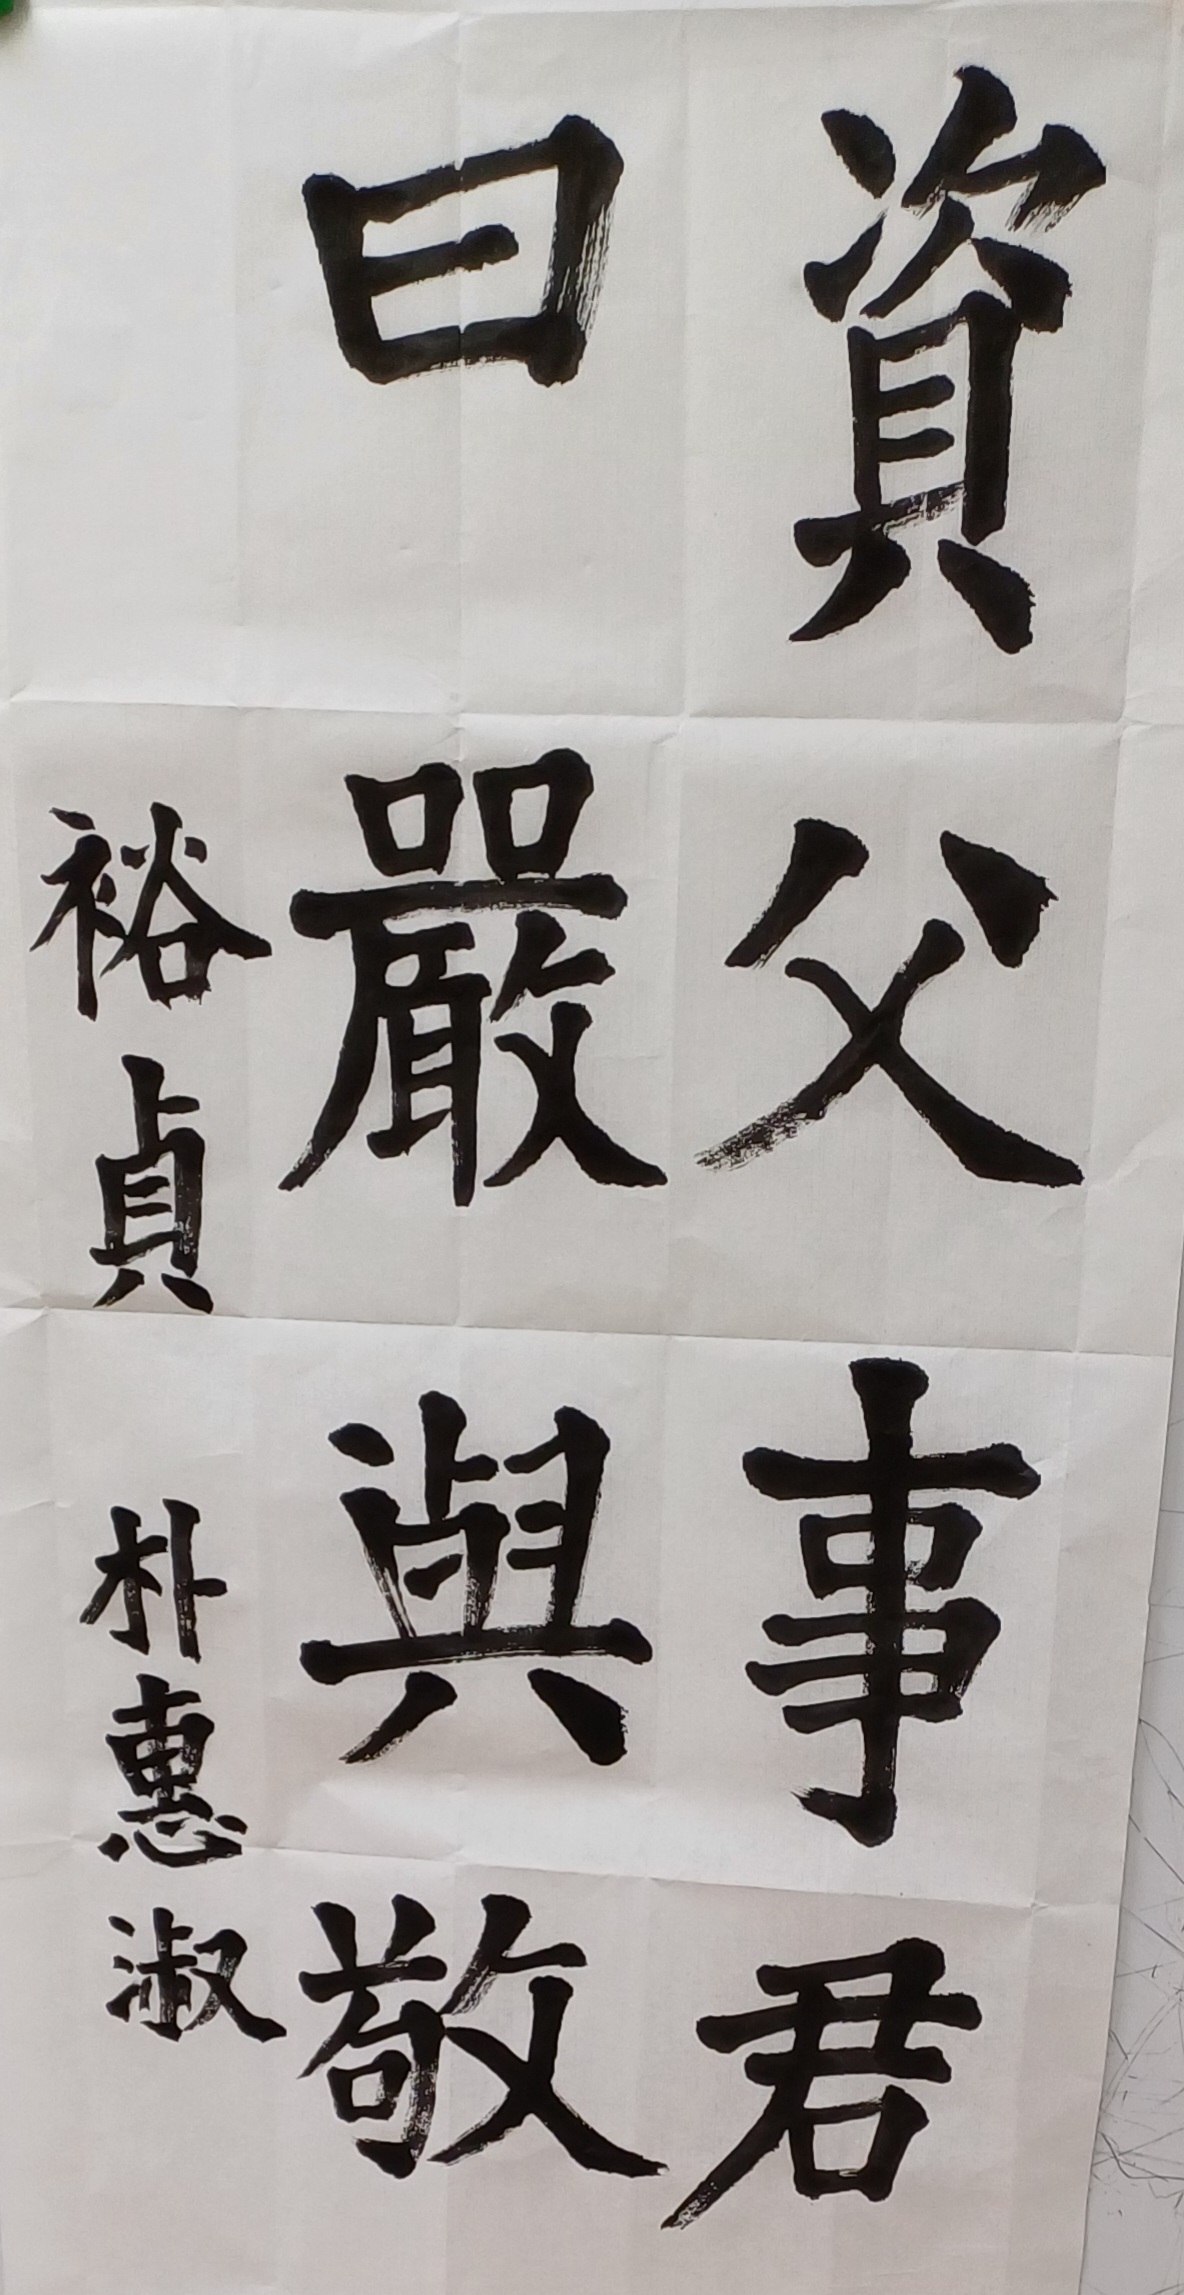 資父事君
曰嚴與敬
裕貞 朴惠淑